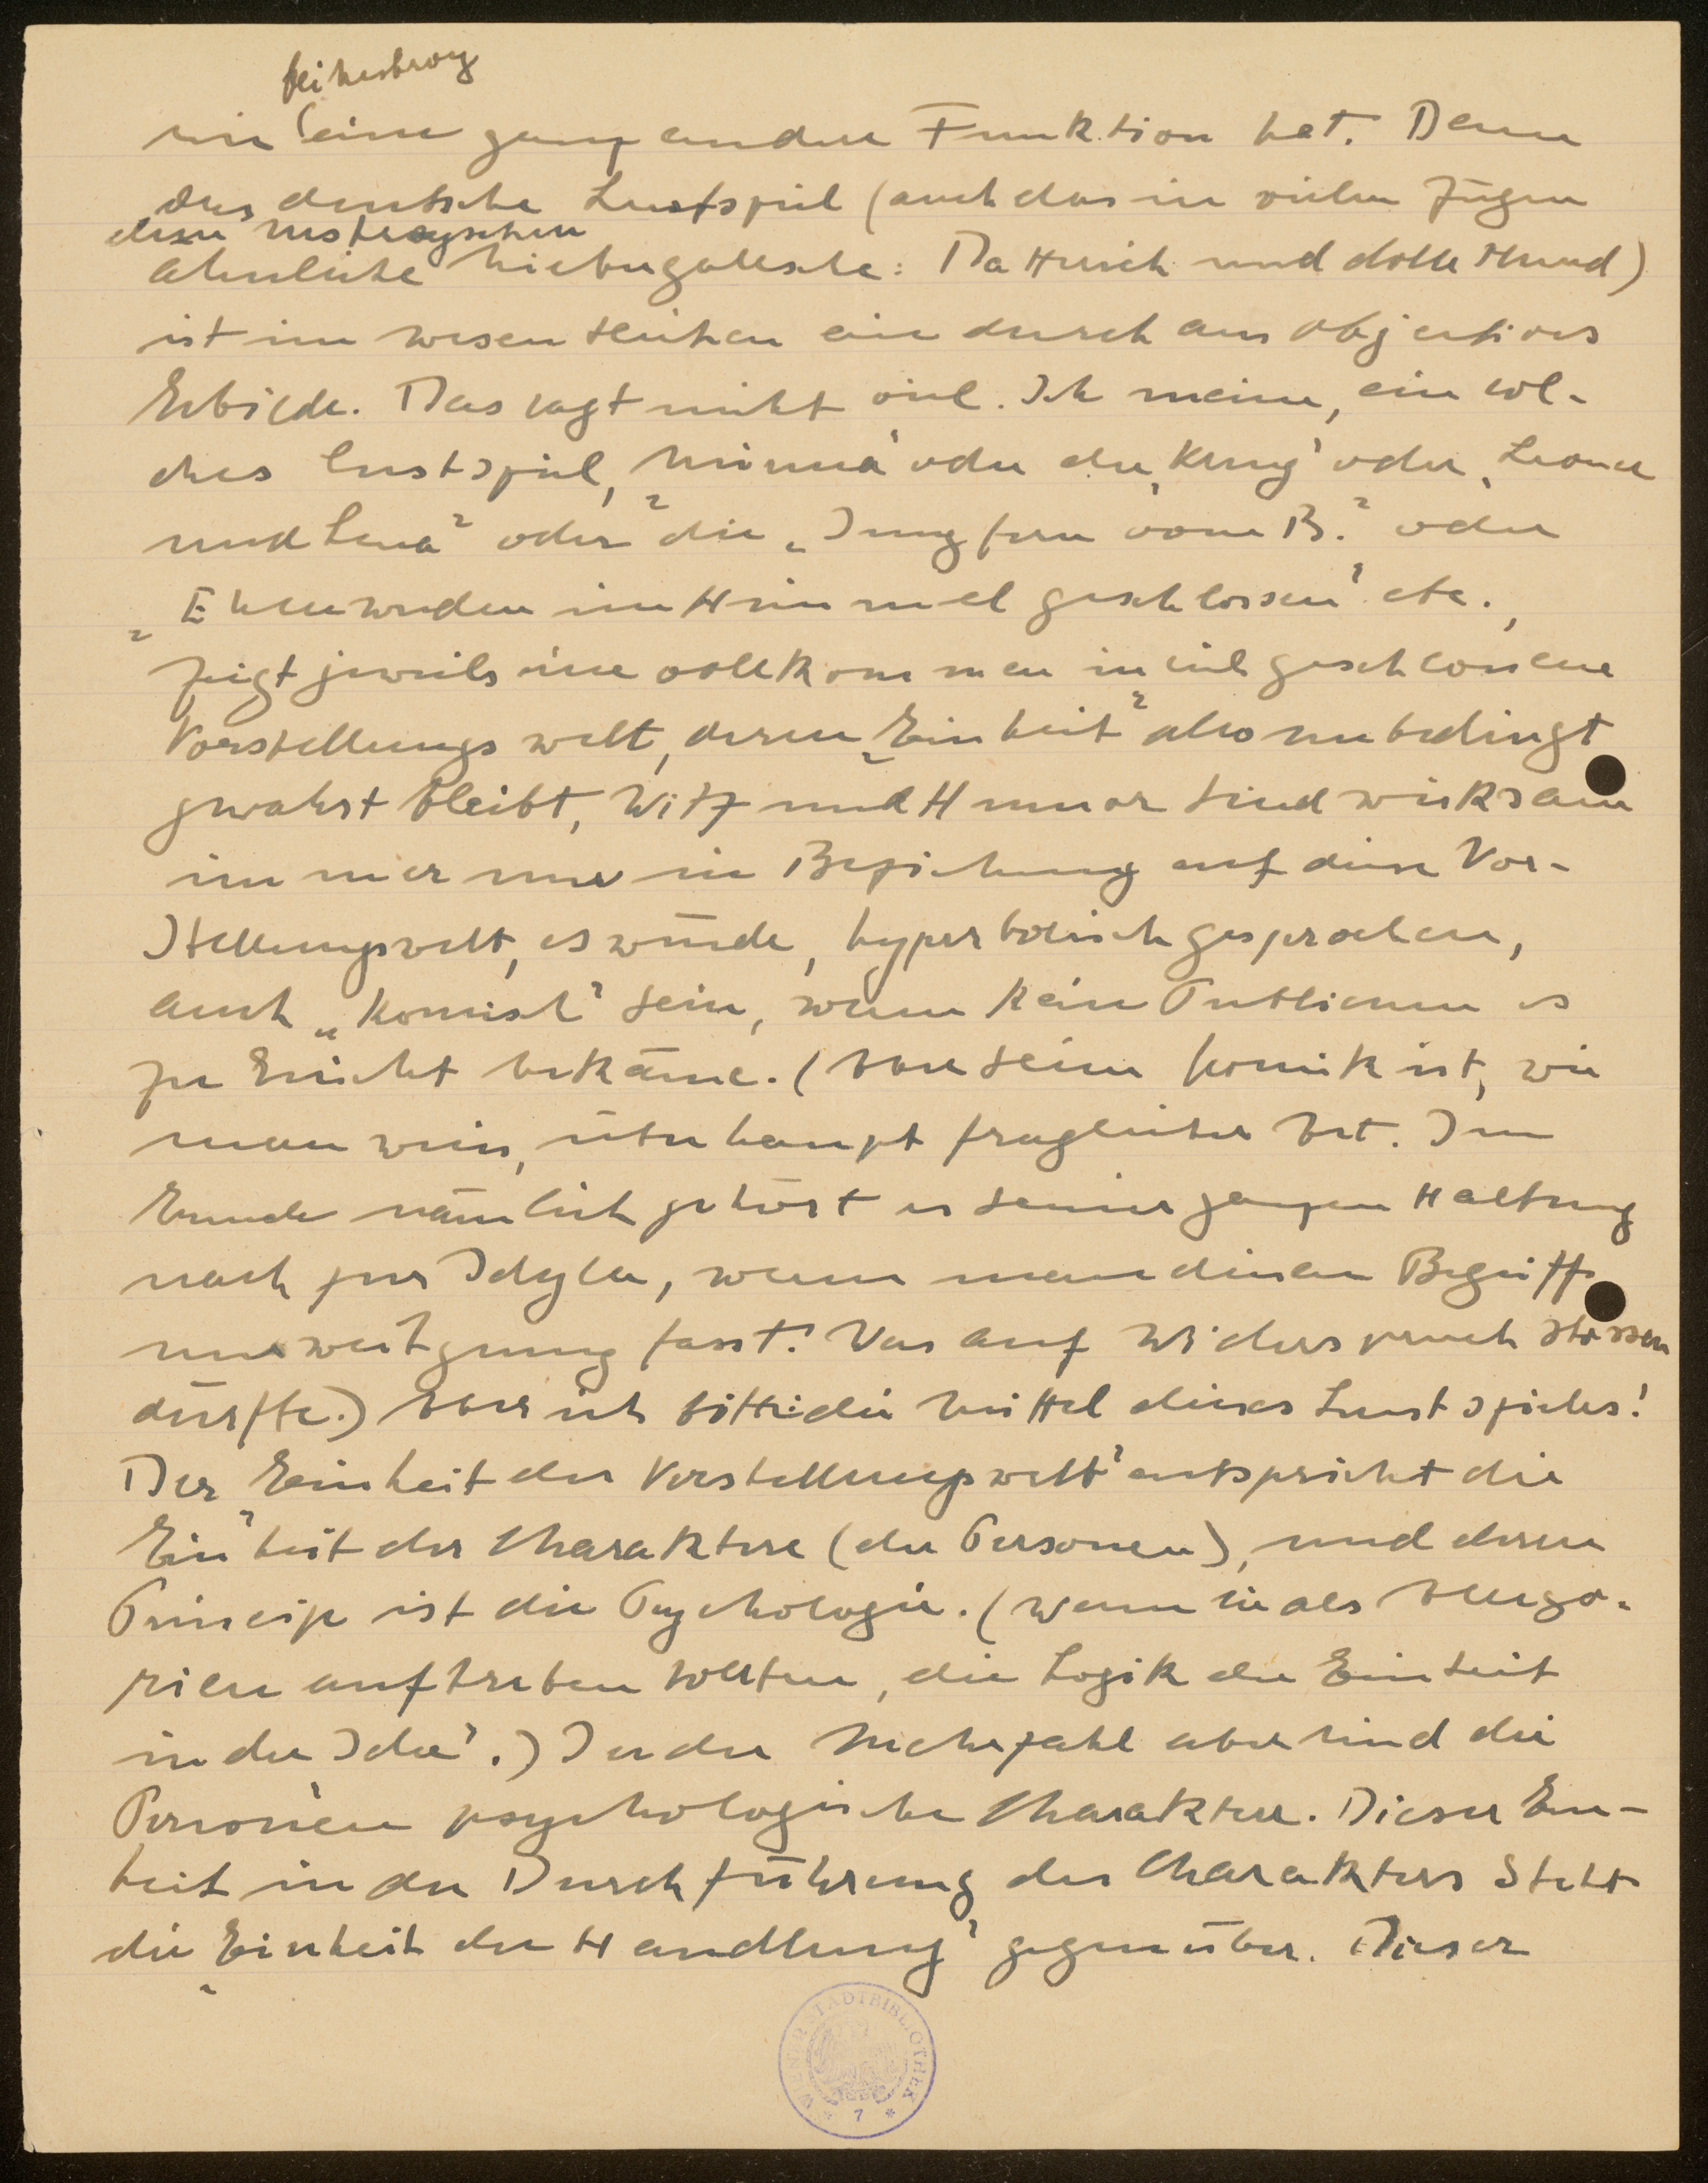 sie eine ganz andere Funktion hat. Denn
das deutsche Lustspiel (auch das in vielen Zügen
dem Nestroyschen
ähnliche Niebergallsche: Datterich und dolle Hund)
ist im wesentlichen ein durchaus objectives
Gebilde. Das sagt nicht viel. Ich meine, ein sol-
ches Lustspiel, „Minna" oder der „Krug" oder „Leonce
und Lena" oder die „Jungfern vom B." oder
„Ehen werden im Himmel geschlossen" etc.,
zeigt jeweils eine vollkommen in sich geschlossene
Vorstellungswelt, deren „Einheit" also unbedingt
gewahrt bleibt, Witz und Humor sind wirksam
immer nur in Beziehung auf diese Vor-
stellungswelt, es würde, hyperbolisch gesprochen,
auch „komisch" sein, wenn kein Publicum es
zu Gesicht bekäme. (Aber seine Komik ist, wie
man weiss, überhaupt fraglicher Art. Im
Grunde nämlich gehört es seiner ganzen Haltung
nach zur Idylle, wenn man diesen Begriff
nur weit genug fasst. Was auf Widerspruch stossen
dürfte.) Aber ich bitte: die Mittel dieses Lustspieles!
Der „Einheit der Vorstellungswelt" entspricht die
Einheit der Charaktere (der Personen), und deren
Princip ist die Psychologie. (Wenn sie als Allego-
rien auftreten sollten, die Logik der Einheit
in der Idee.) In der Mehrzahl aber sind die
Personen psychologische Charaktere. Dieser Ein-
heit in der Durchführung des Charakters steht
die „Einheit der Handlung" gegenüber. Dieser
WIENER STADTBIBLIOTHEK
7